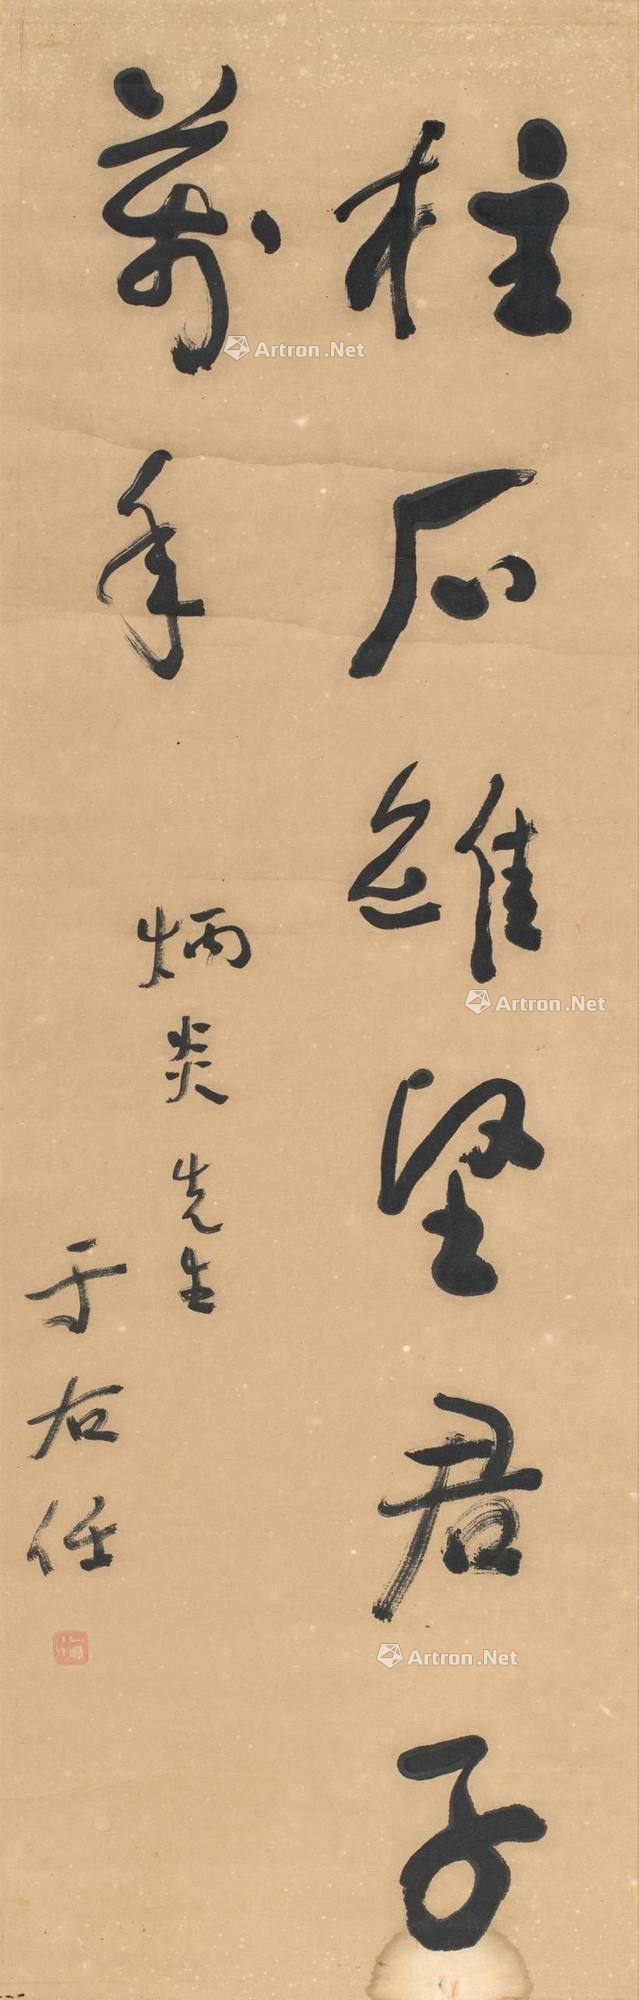 柱石維堅君子
萬年
炳炎先生
于右任
Artron.Net
Artron.Net
Artron.Net